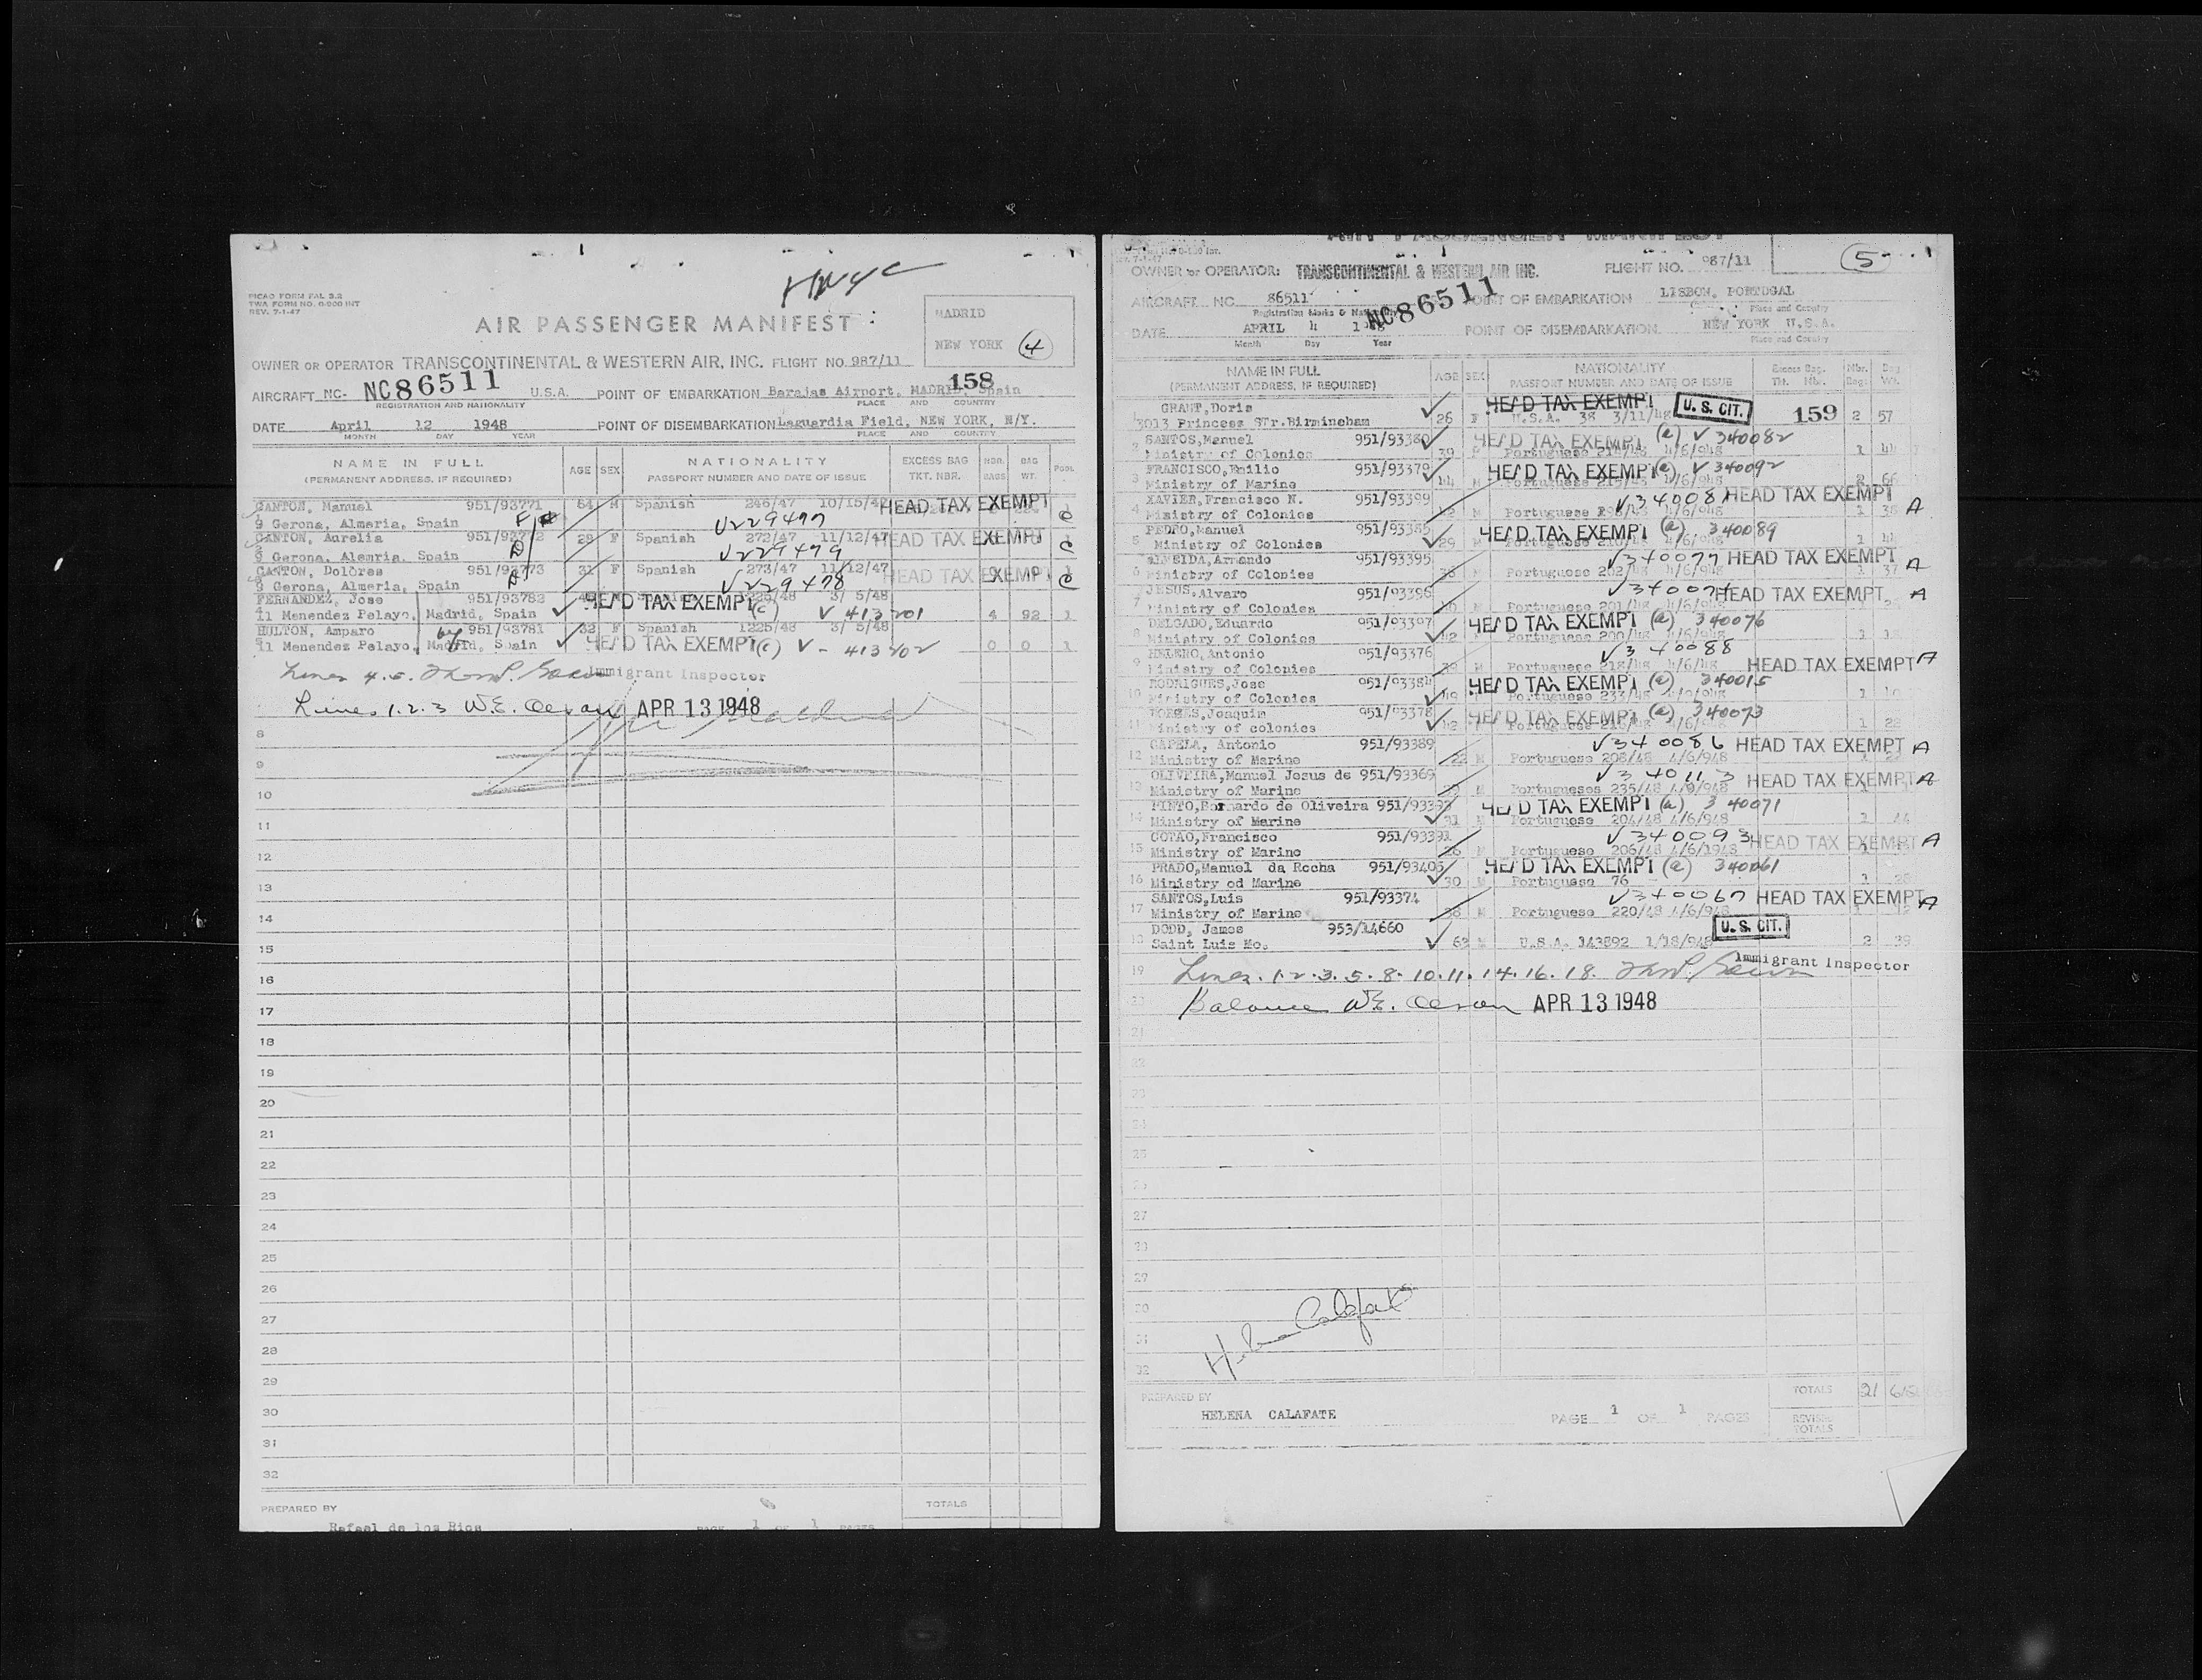 PICAO FORM FAL 3.2
TWA FORM NO. 0-900 INT
REV. 7-1-47
AIR PASSENGER MANIFEST
MADRID
NEW YORK 4
OWNER OR OPERATOR TRANSCONTINENTAL & WESTERN AIR, INC. FLIGHT NO. 987/11
158
AIRCRAFT NC- NC86511 U.S.A. POINT OF EMBARKATION Barajas Airport, MADRID, Spain
REGISTRATION AND NATIONALITY PLACE AND COUNTRY
DATE April 12 1948 POINT OF DISEMBARKATION Laguardia Field, NEW YORK, N/Y.
MONTH DAY YEAR PLACE AND COUNTRY
NAME IN FULL AGE SEX NATIONALITY EXCESS BAG NBR. BAG POOL
(PERMANENT ADDRESS, IF REQUIRED) PASSPORT NUMBER AND DATE OF ISSUE TKT. NBR. BAGS WT.
CANTON, Manuel 951/93771 64 M Spanish 246/47 10/15/47 HEAD TAX EXEMPT
1 9 Gerona, Almeria, Spain V229477
CANTON, Aurelia 951/93772 28 F Spanish 272/47 11/12/47 HEAD TAX EXEMPT
2 9 Gerona, Alemria, Spain V229479
CANTON, Dolores 951/93773 31 F Spanish 273/47 11/12/47 HEAD TAX EXEMPT
3 9 Gerona, Almeria, Spain V229478
FERNANDEZ, Jose 951/93782 Spanish 1226/48 3/ 5/48
HEAD TAX EXEMPT (c) V 413201
4 11 Menendez Pelayo, Madrid, Spain 4 92 1
HULTON, Amparo 951/93781 32 F Spanish 1225/48 3/ 5/48
5 11 Menendez Pelayo, Madrid, Spain HEAD TAX EXEMPT (c) V - 413202 0 0 1
Lines 4.5. Immigrant Inspector
Lines 1.2.3 W.E. APR 13 1948
8
9
10
11
12
13
14
15
16
17
18
19
20
21
22
23
24
25
26
27
28
29
30
31
32
PREPARED BY TOTALS
Rafael de los Rios PAGE 1 OF 1 PAGES
AIR PASSENGER MANIFEST
5
OWNER or OPERATOR: TRANSCONTINENTAL & WESTERN AIR INC. FLIGHT NO. 987/11
AIRCRAFT NC 86511 NC86511 POINT OF EMBARKATION LISBON, PORTUGAL
Registration Marks & Nationality Place and Country
DATE APRIL POINT OF DISEMBARKATION NEW YORK U.S.A.
Month Day Year Place and Country
NAME IN FULL AGE SEX NATIONALITY Excess Bag. Nbr. Bag
(PERMANENT ADDRESS, IF REQUIRED) PASSPORT NUMBER AND DATE OF ISSUE Tkt. Nbr. Bags Wt.
GRANT, Doris HEAD TAX EXEMPT U. S. CIT.
1 3013 Princess STr.Birmingham 26 F U.S.A. 38 3/11/48 159 2 57
SANTOS,Manuel 951/93380 HEAD TAX EXEMPT (a) V 340082
2 Ministry of Colonies 39 Portuguese 4/6/948
FRANCISCO,Emilio 951/93379 HEAD TAX EXEMPT (a) V 340092
3 Ministry of Marine 44 M Portuguese 4/6/948 2 66
XAVIER,Francisco N. 951/93399 V340081 HEAD TAX EXEMPT A
4 Ministry of Colonies 42 M Portuguese 4/6/948
PEDRO,Manuel HEAD TAX EXEMPT (a) 340089
5 Ministry of Colonies 29 Portuguese 4/6/948
ALMEIDA,Armando 951/93395 V340077 HEAD TAX EXEMPT A
6 Ministry of Colonies 38 M Portuguese 202/48 4/6/948 1 37
JESUS,Alvaro 951/93396 HEAD TAX EXEMPT A
7 Ministry of Colonies M Portuguese 201/48 4/6/948
DELGADO,Eduardo 951/93397 HEAD TAX EXEMPT (a) 340076
8 Ministry of Colonies 42 Portuguese 200/48 4/6/948
Antonio 951/93376 V340088
9 Ministry of Colonies 39 M Portuguese 218/48 4/6/48 HEAD TAX EXEMPT A
RODRIGUES,Jose 951/93384 HEAD TAX EXEMPT (a) 340015
10 Ministry of Colonies 49 Portuguese 233/48
BORGES,Joaquim 951/93378 HEAD TAX EXEMPT (a) 340073
11 Ministry of colonies 42 Portuguese 4/6/948 1 28
CAPELA, Antonio 951/93389 V340086 HEAD TAX EXEMPT A
12 Ministry of Marine 22 M Portuguese 208/48 4/6/948
OLIVEIRA,Manuel Jesus de 951/93369 V340113 HEAD TAX EXEMPT A
13 Ministry of Marine M Portugueses 235/48 4/9/948
PINTO,Bernardo de Oliveira HEAD TAX EXEMPT (a) 340071
14 Ministry of Marine 31 Portuguese 204/48 4/6/948 1 44
COTAO,Francisco 951/93391 V340093 HEAD TAX EXEMPT A
15 Ministry of Marine Portuguese 206/48 4/6/1948
PRADO,Manuel da Rocha 951/93405 HEAD TAX EXEMPT (a) 340061
16 Ministry od Marine 30 Portuguese 76
SANTOS,Luis 951/93374 V340067 HEAD TAX EXEMPT A
17 Ministry of Marine 38 M Portuguese 220/48 4/6/948
DODD, James 953/14660 U. S. CIT.
18 Saint Luis Mo. 62 M U.S.A. 143892 1/18/948 2 39
19 Lines. 1.2.3.5.8.10.11.14.16.18. Immigrant Inspector
20 Balance W.E. APR 13 1948
21
22
23
24
25
26
27
28
29
30
31
32
Helena Calafate
PREPARED BY TOTALS 21
HELENA CALAFATE PAGE 1 OF 1 PAGES REVISED TOTALS